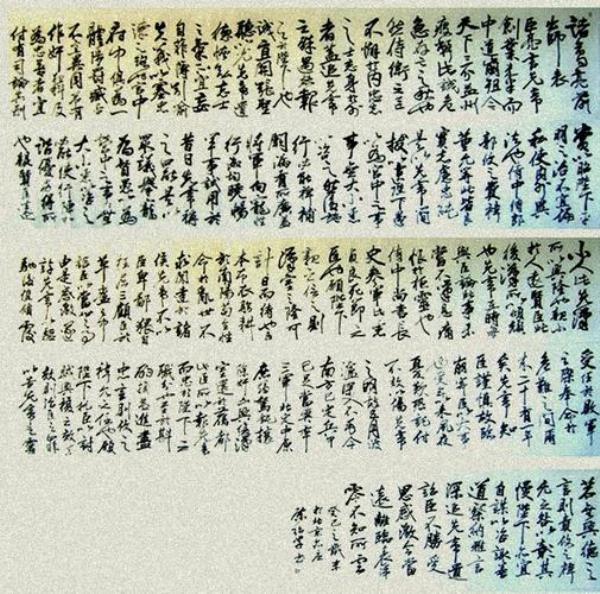 諸葛亮前
出師表
臣亮言先帝
創業未半而
中道崩殂今
天下三分益州
疲敝此誠危
急存亡之秋也
然侍衛之臣
不懈於內忠志
之士忘身於外
者蓋追先帝
之殊遇欲報
之於陛下也
誠宜開張聖
聽以光先帝遺
德恢弘志士
之氣不宜妄
自菲薄引喻
失義以塞忠
諫之路也宮中
府中俱為一
體陟罰臧否
不宜異同若有
作奸犯科及
為忠善者宜
付有司論其刑
賞以昭陛下平
明之治不宜偏
私使內外異
法也侍中侍郎
郭攸之費禕
董允等此皆良
實志慮忠純
是以先帝簡
拔以遺陛下愚
以為宮中之事
事無大小悉
以咨之然後施
行必能裨補
闕漏有所廣益
將軍向寵性
行淑均曉暢
軍事試用於
昔日先帝稱
之曰能是以
眾議舉寵
為督愚以為
營中之事事
大小悉以咨之
必能使行陣和
諧優劣得所
也親賢臣遠
小人此先漢
所以興隆也親小
人遠賢臣此
後漢所以傾頹
也先帝在時每
與臣論此事未
嘗不嘆息痛
恨於桓靈也
侍中尚書長
史參軍此悉
貞良死節之
臣也願陛下
親之信之則
漢室之隆可
計日而待也臣
本布衣躬耕
於南陽苟全性
命於亂世不
求聞達於諸
侯先帝不以
臣卑鄙猥自
枉屈三顧臣於
草廬之中
諮臣以當世之事
由是感激遂
許先帝以驅
馳後值傾覆
受任於敗軍
之際奉命於
危難之間爾
來二十有一年
矣先帝知
臣謹慎故臨
崩寄臣以大事
也受命以來夙夜
憂嘆恐託付
不效以傷先帝
之明故五月渡
瀘深入不毛今
南方已定兵甲
已足當獎率
三軍北定中原
庶竭駑鈍攘
除奸凶興復漢
室還於舊都
此臣所以報先帝
而忠於陛下之
職分也至於斟
酌損益進盡
忠言則攸之
禕允之任也願
陛下託臣以討
賊興復之效不
效則治臣之罪
以告先帝之靈
若無興德之
言則責攸之禕
允之咎以彰其
慢陛下亦宜
自謀以咨諏善
道察納雅言
深追先帝遺
詔臣不勝受
恩感激今當
遠離臨表涕
零不知所云
癸巳之歲末
於北京